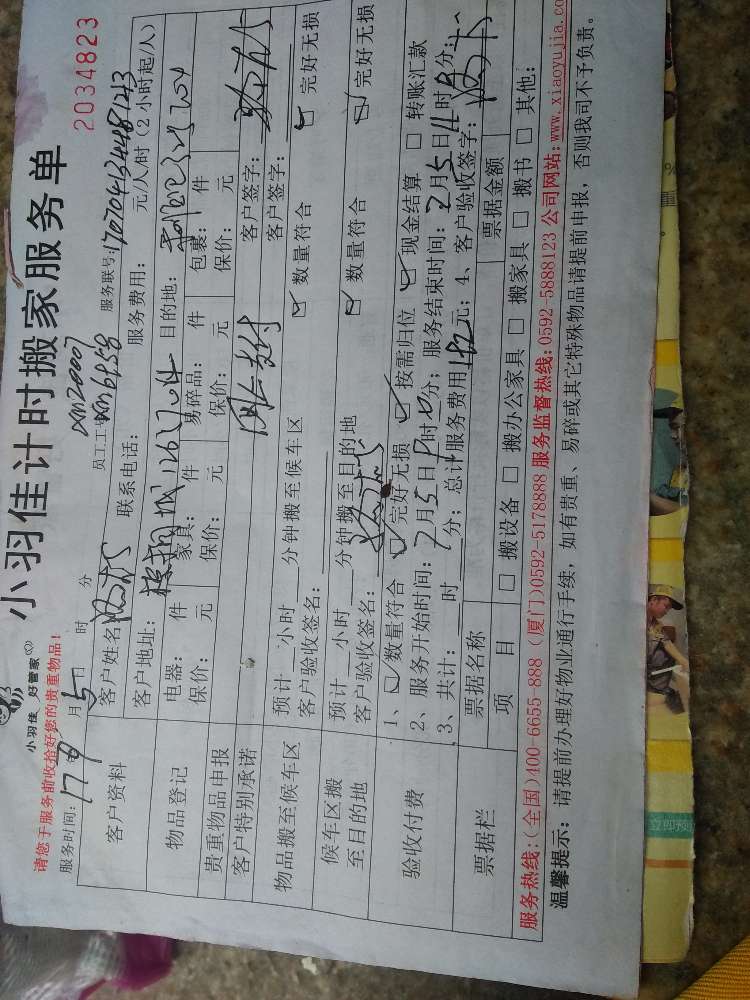 小羽佳计时搬家服务单
2034823
小羽佳 好管家
请您于服务前收拾好您的贵重物品！
员工工号 服务联号:1707041344481243
服务时间: 月5日 时 分
客户资料
客户姓名 联系电话: 服务费用: 元/人/时(2小时起/人)
客户地址: 目的地:
物品登记
电器: 件 家具: 件 易碎品: 件 包裹: 件
贵重物品申报
保价: 元 保价: 元 保价: 元 保价: 元
客户特别承诺
客户签字:
物品搬至候车区
预计 小时 分钟搬至候车区 客户签字:
客户验收签名: ☑ 数量符合 ☑ 完好无损
候车区搬至目的地
预计 小时 分钟搬至目的地
客户验收签名: ☑ 数量符合 ☑ 完好无损
验收付费
1、☑数量符合 ☑完好无损 ☑按需归位 ☑现金结算 □转账汇款
2、服务开始时间: 7月5日 时 分; 服务结束时间: 7月5日 时 分;
3、共计: 时 分; 总计服务费用 元; 4、客户验收签字:
票据栏
票据名称 票据金额
项 目 □搬设备 □搬办公家具 □搬家具 □搬书 □其他:
服务热线:(全国)400-6655-888 (厦门)0592-5178888 服务监督热线:0592-5888123 公司网站:www.xiaoyujia.co
温馨提示: 请提前办理好物业通行手续，如有贵重、易碎或其它特殊物品请提前申报，否则我司不予负责。